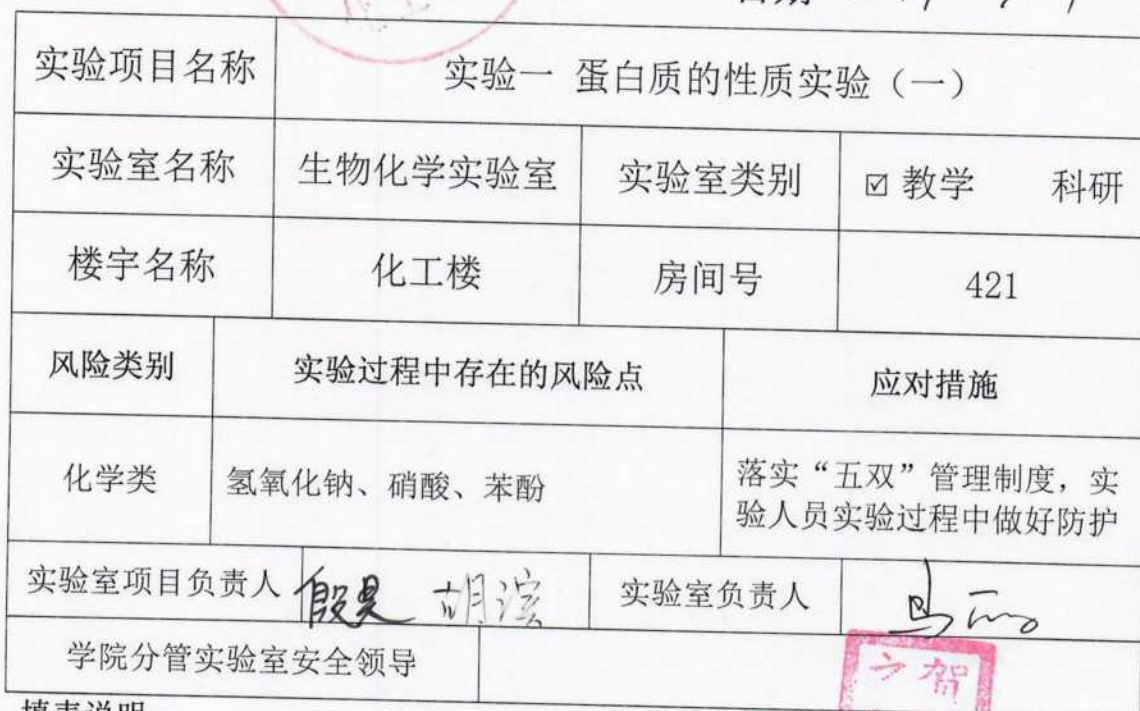 日期
实验项目名称 实验一 蛋白质的性质实验（一）
实验室名称 生物化学实验室 实验室类别 ☑ 教学 科研
楼宇名称 化工楼 房间号 421
风险类别 实验过程中存在的风险点 应对措施
化学类 氢氧化钠、硝酸、苯酚 落实“五双”管理制度，实
验人员实验过程中做好防护
实验室项目负责人 胡滨 实验室负责人
学院分管实验室安全领导
填表说明